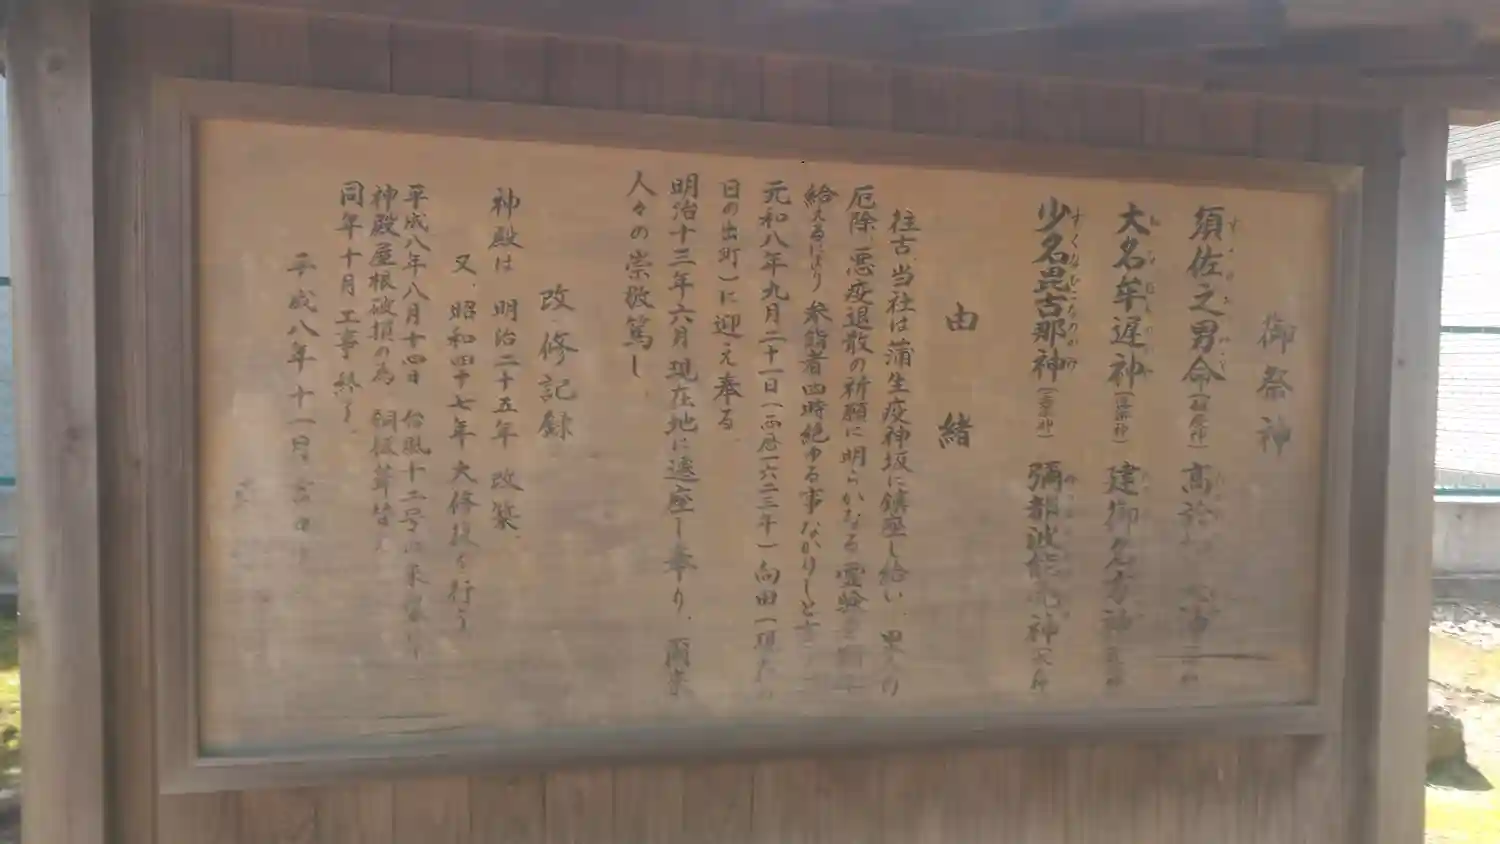 御祭神
須佐之男命
大名牟遅神 建御名方神
少名毘古那神 彌都波能売神
由緒
往古、当社は蒲生疫神坂に鎮座し給い、里人の
厄除、悪疫退散の祈願に明らかなる霊験
給えるにより 参詣者四時絶ゆる事なかりしと
元和八年九月二十一日(西暦一六二三年)向田(現在の
日の出町)に迎え奉る。
明治十三年六月 現在地に遷座し奉り、爾来
人々の崇敬篤し
改修記録
神殿は 明治二十五年 改築、
又、昭和四十七年 大修 行う
平成八年八月十四日 台風十二号
神殿屋根破損の為 銅板葺替え
同年十月工事終る。
平成八年十一月